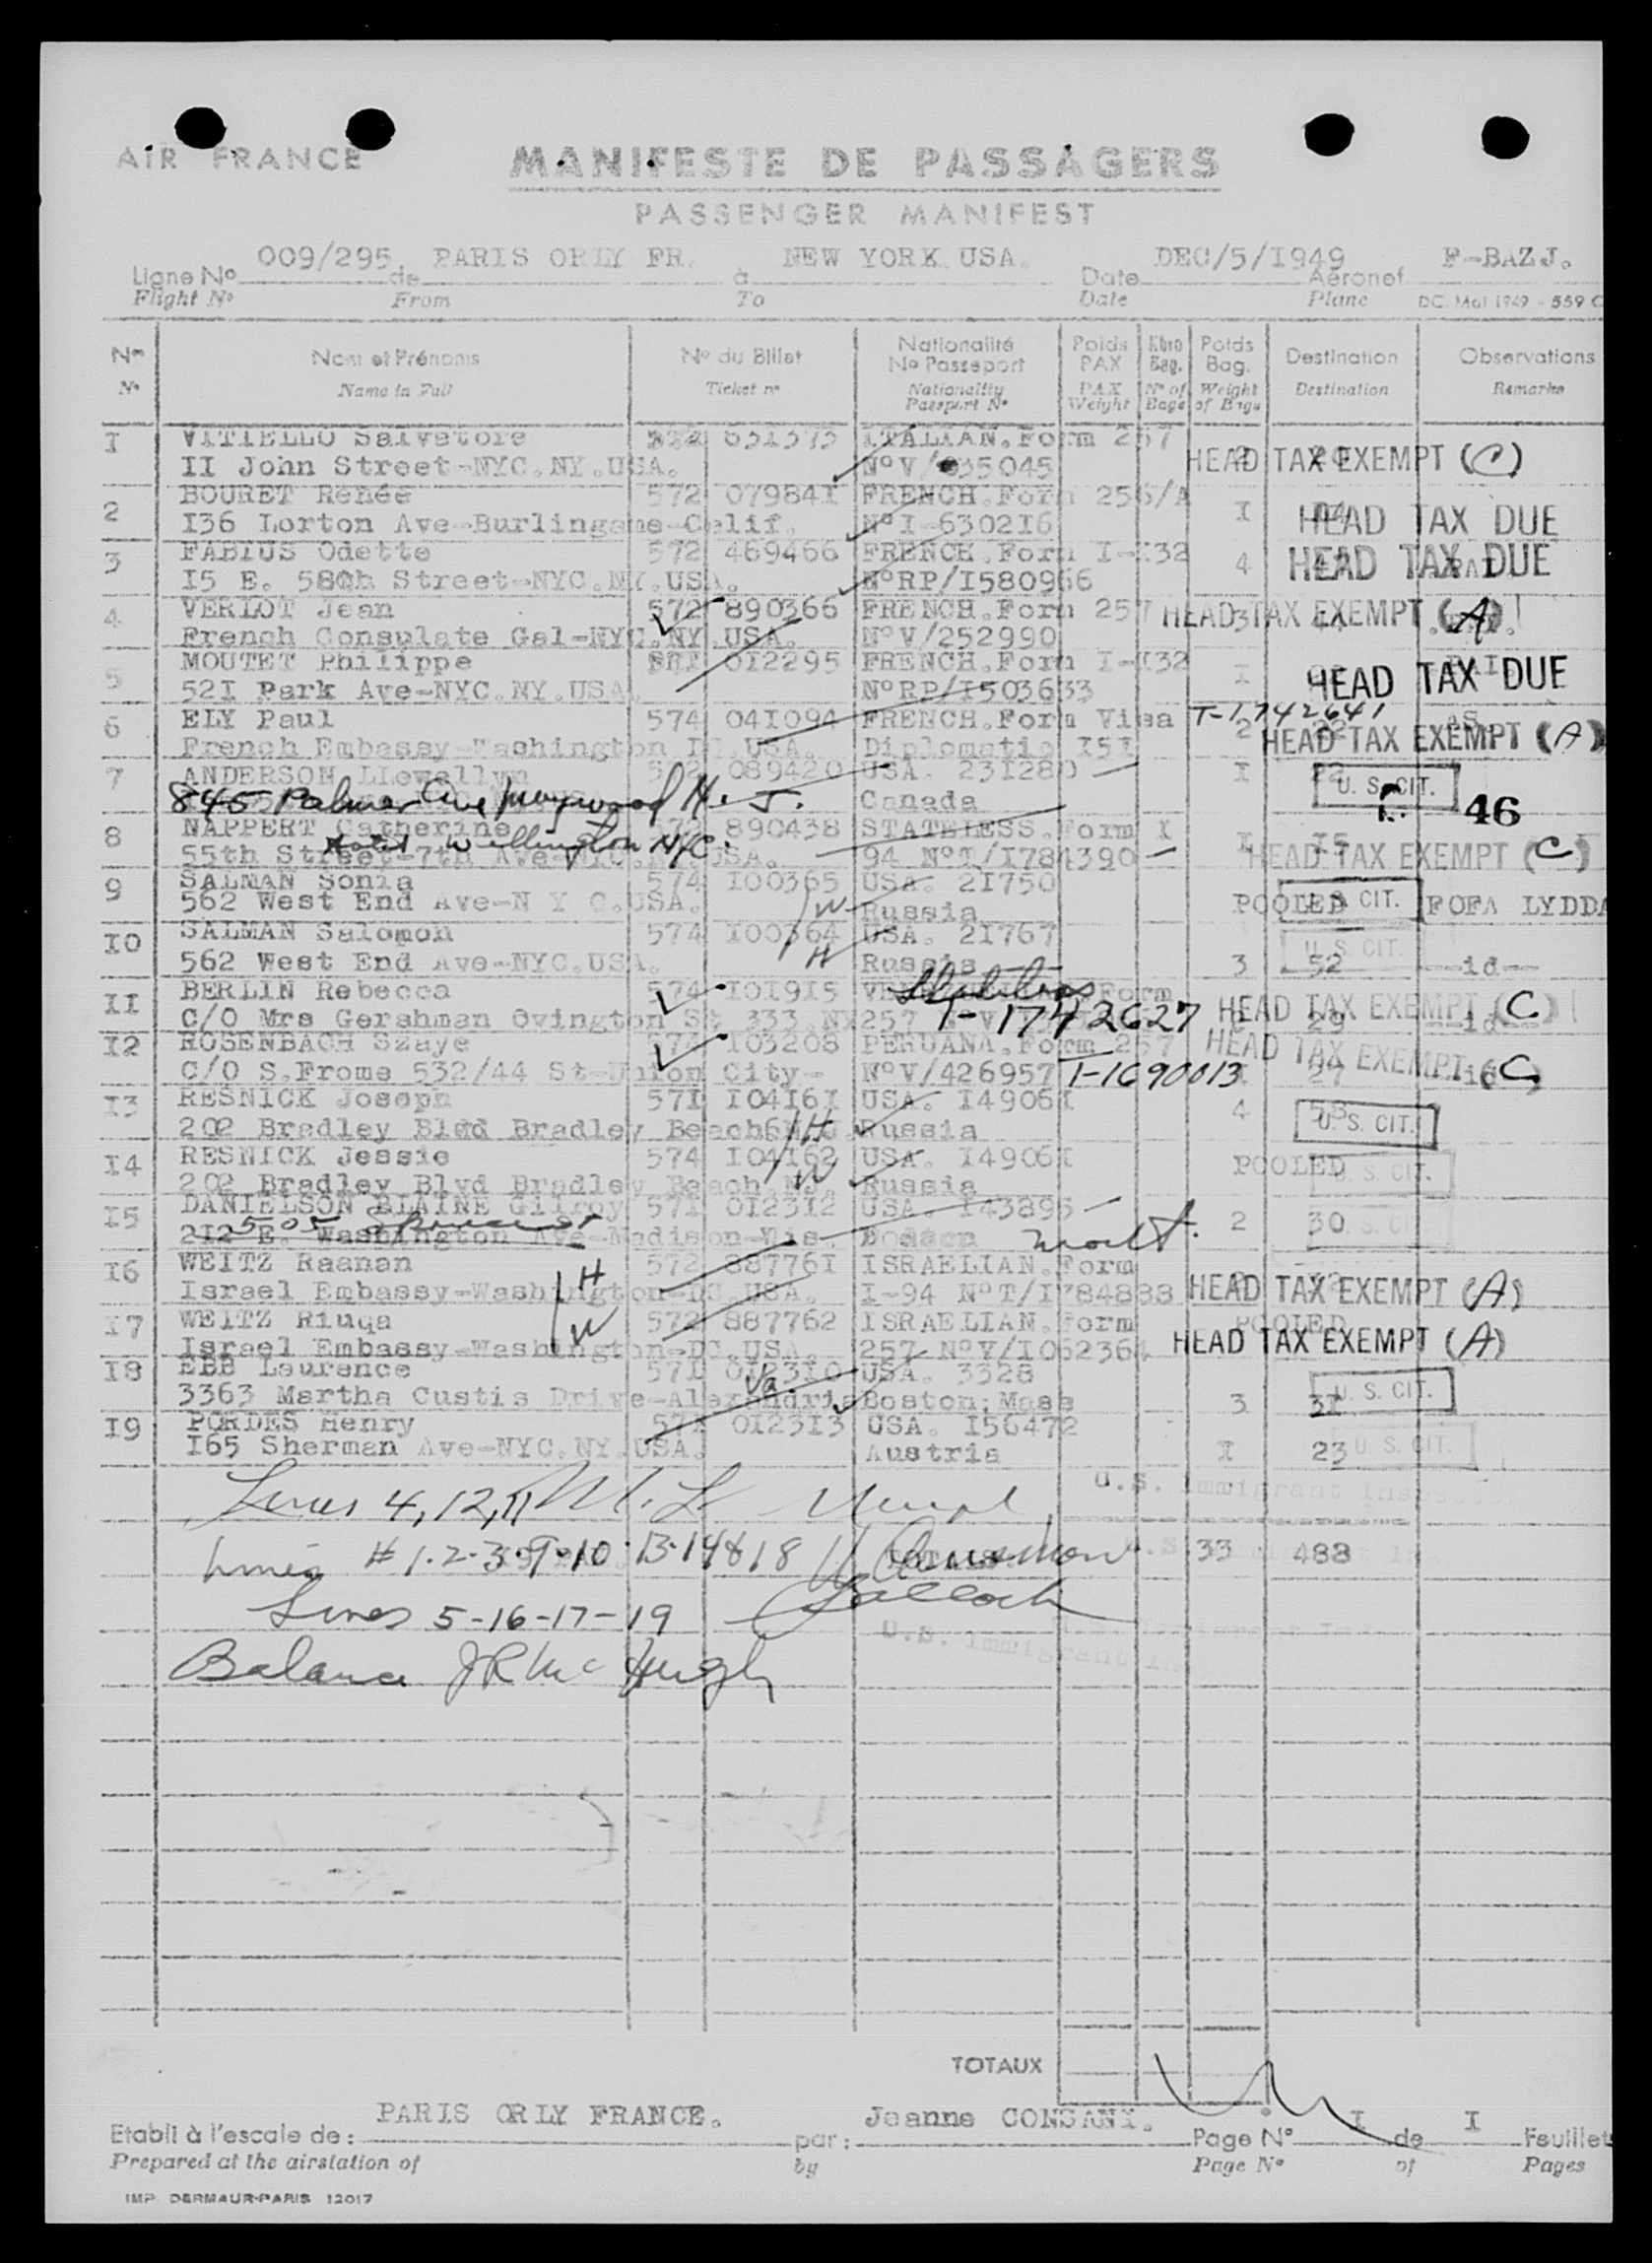 AIR FRANCE
MANIFESTE DE PASSAGERS
PASSENGER MANIFEST
Ligne No 009/295. de PARIS ORLY FR. à NEW YORK USA. Date DEC/5/I949 Aéronef F-BAZJ.
Flight No From To Date Plane DC. Mai 1949 - 559 C
Nos Nom et Prénoms No du Billet Nationalité No Passeport Poids PAX Nbre Bag. Poids Bag. Destination Observations
No Name in Full Ticket no Nationality Passport No PAX Weight No of Bags Weight of Bags Destination Remarks
I VITIELLO Salvatore 572 ITALIAN.Form 257
II John Street-NYC.NY.USA. HEAD TAX EXEMPT (C)
2 BOURET Renée 572 079841 FRENCH.Form 256/A
I36 Lorton Ave-Burlingame-Calif. NoI-6302I6 I HEAD TAX DUE
3 FABIUS Odette 572 469466 FRENCH.Form I-I32
I5 E. 58th Street-NYC.NY.USA. NoRP/I580966 4 HEAD TAX DUE
4 VERLOT Jean 572 890366 FRENCH.Form 257
French Consulate Gal-NYC.NY.USA. NoV/252990 3 HEAD TAX EXEMPT (A)
5 MOUTET Philippe 0I2295 FRENCH.Form I-I32
52I Park Ave-NYC.NY.USA. NoRP/I503633 I HEAD TAX DUE
6 ELY Paul 574 04I094 FRENCH.Form Visa T-1742641
French Embassy-Washington DC.USA. Diplomatic I5I 2 HEAD TAX EXEMPT (A)
7 ANDERSON Llewellyn 572 089420 USA. 23I280 I 22 U. S. CIT.
845 Palmer Ave Maywood N. J. Canada 46
8 NAPPERT Catherine 572 890438 STATELESS.Form I
Hotel Wellington NYC.
55th Street-7th Ave-NYC.NY.USA. 94 NoT/I784390 I I5 HEAD TAX EXEMPT (C)
9 SALMAN Sonia 574 I00365 USA. 2I750
562 West End Ave-N Y C.USA. W Russia POOLED U. S. CIT. FOFA LYDDA
I0 SALMAN Salomon 574 I00364 USA. 2I767
562 West End Ave-NYC.USA. H Russia 3 52 U. S. CIT. --id--
II BERLIN Rebecca 574 I0I9I5 Form
C/O Mrs Gershman Ovington St 333 NY 257 T-1742627 29 HEAD TAX EXEMPT (C) --id--
I2 ROSENBACH Szaye 574 I03208 PERUANA.Form 257
C/O S.Frome 532/44 St-Union City- NoV/426957 T-1690013 I 27 HEAD TAX EXEMPT (C)
I3 RESNICK Joseph 57I I04I6I USA. I4906I
202 Bradley Blvd Bradley Beach H Russia 4 U. S. CIT.
I4 RESNICK Jessie 574 I04I62 USA. I4906I
202 Bradley Blvd Bradley Beach W Russia POOLED U. S. CIT.
I5 DANIELSON BLAINE Gilroy 57I 0I23I2 USA. I43895
505 Spruce St
2I2 E. Washington Ave-Madison-Wis. 2 30 U. S. CIT.
I6 WEITZ Raanan 572 88776I ISRAELIAN.Form
Israel Embassy-Washington-DC.USA. H I-94 NoT/I784888 HEAD TAX EXEMPT (A)
I7 WEITZ Riuqa 572 887762 ISRAELIAN.Form
Israel Embassy-Washington-DC.USA. W 257 NoV/I062364 POOLED HEAD TAX EXEMPT (A)
I8 EBB Laurence 57I 0I23I0 USA. 3328
3363 Martha Custis Drive-Alexandria Va Boston;Mass 3 3I U. S. CIT.
I9 PORDES Henry 57I 0I23I3 USA. I56472
I65 Sherman Ave-NYC.NY.USA. Austria I 23 U. S. CIT.
Lines 4,12,11
U.S. Immigrant Inspector
Lines # 1.2.3.9.10.13.14&18 33 488
Lines 5-16-17-19
U.S. Immigrant Ins
Balance J R McHugh
TOTAUX
Etabli à l'escale de: PARIS ORLY FRANCE. par: Jeanne CONSANI. Page No I de I Feuillets
Prepared at the airstation of by Page No of Pages
IMP DERMAUR-PARIS 12017